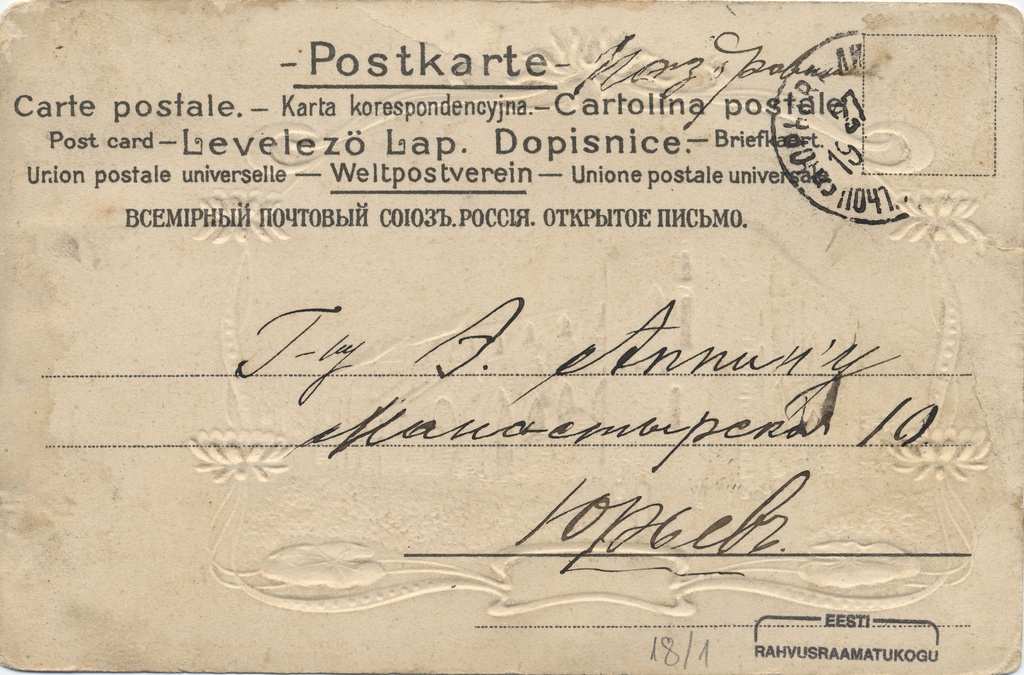 -Postkarte-
Carte postale. — Karta korespondencyjna. — Cartolina postale.
Post card — Levelezö Lap. Dopisnice. — Briefkaart.
Union postale universelle — Weltpostverein — Unione postale universale
ВСЕМІРНЫЙ ПОЧТОВЫЙ СОЮЗЪ. РОССІЯ. ОТКРЫТОЕ ПИСЬМО.
Г-ну Э. Аннин'у
10.
Юрьевъ.
18/1
EESTI
RAHVUSRAAMATUKOGU